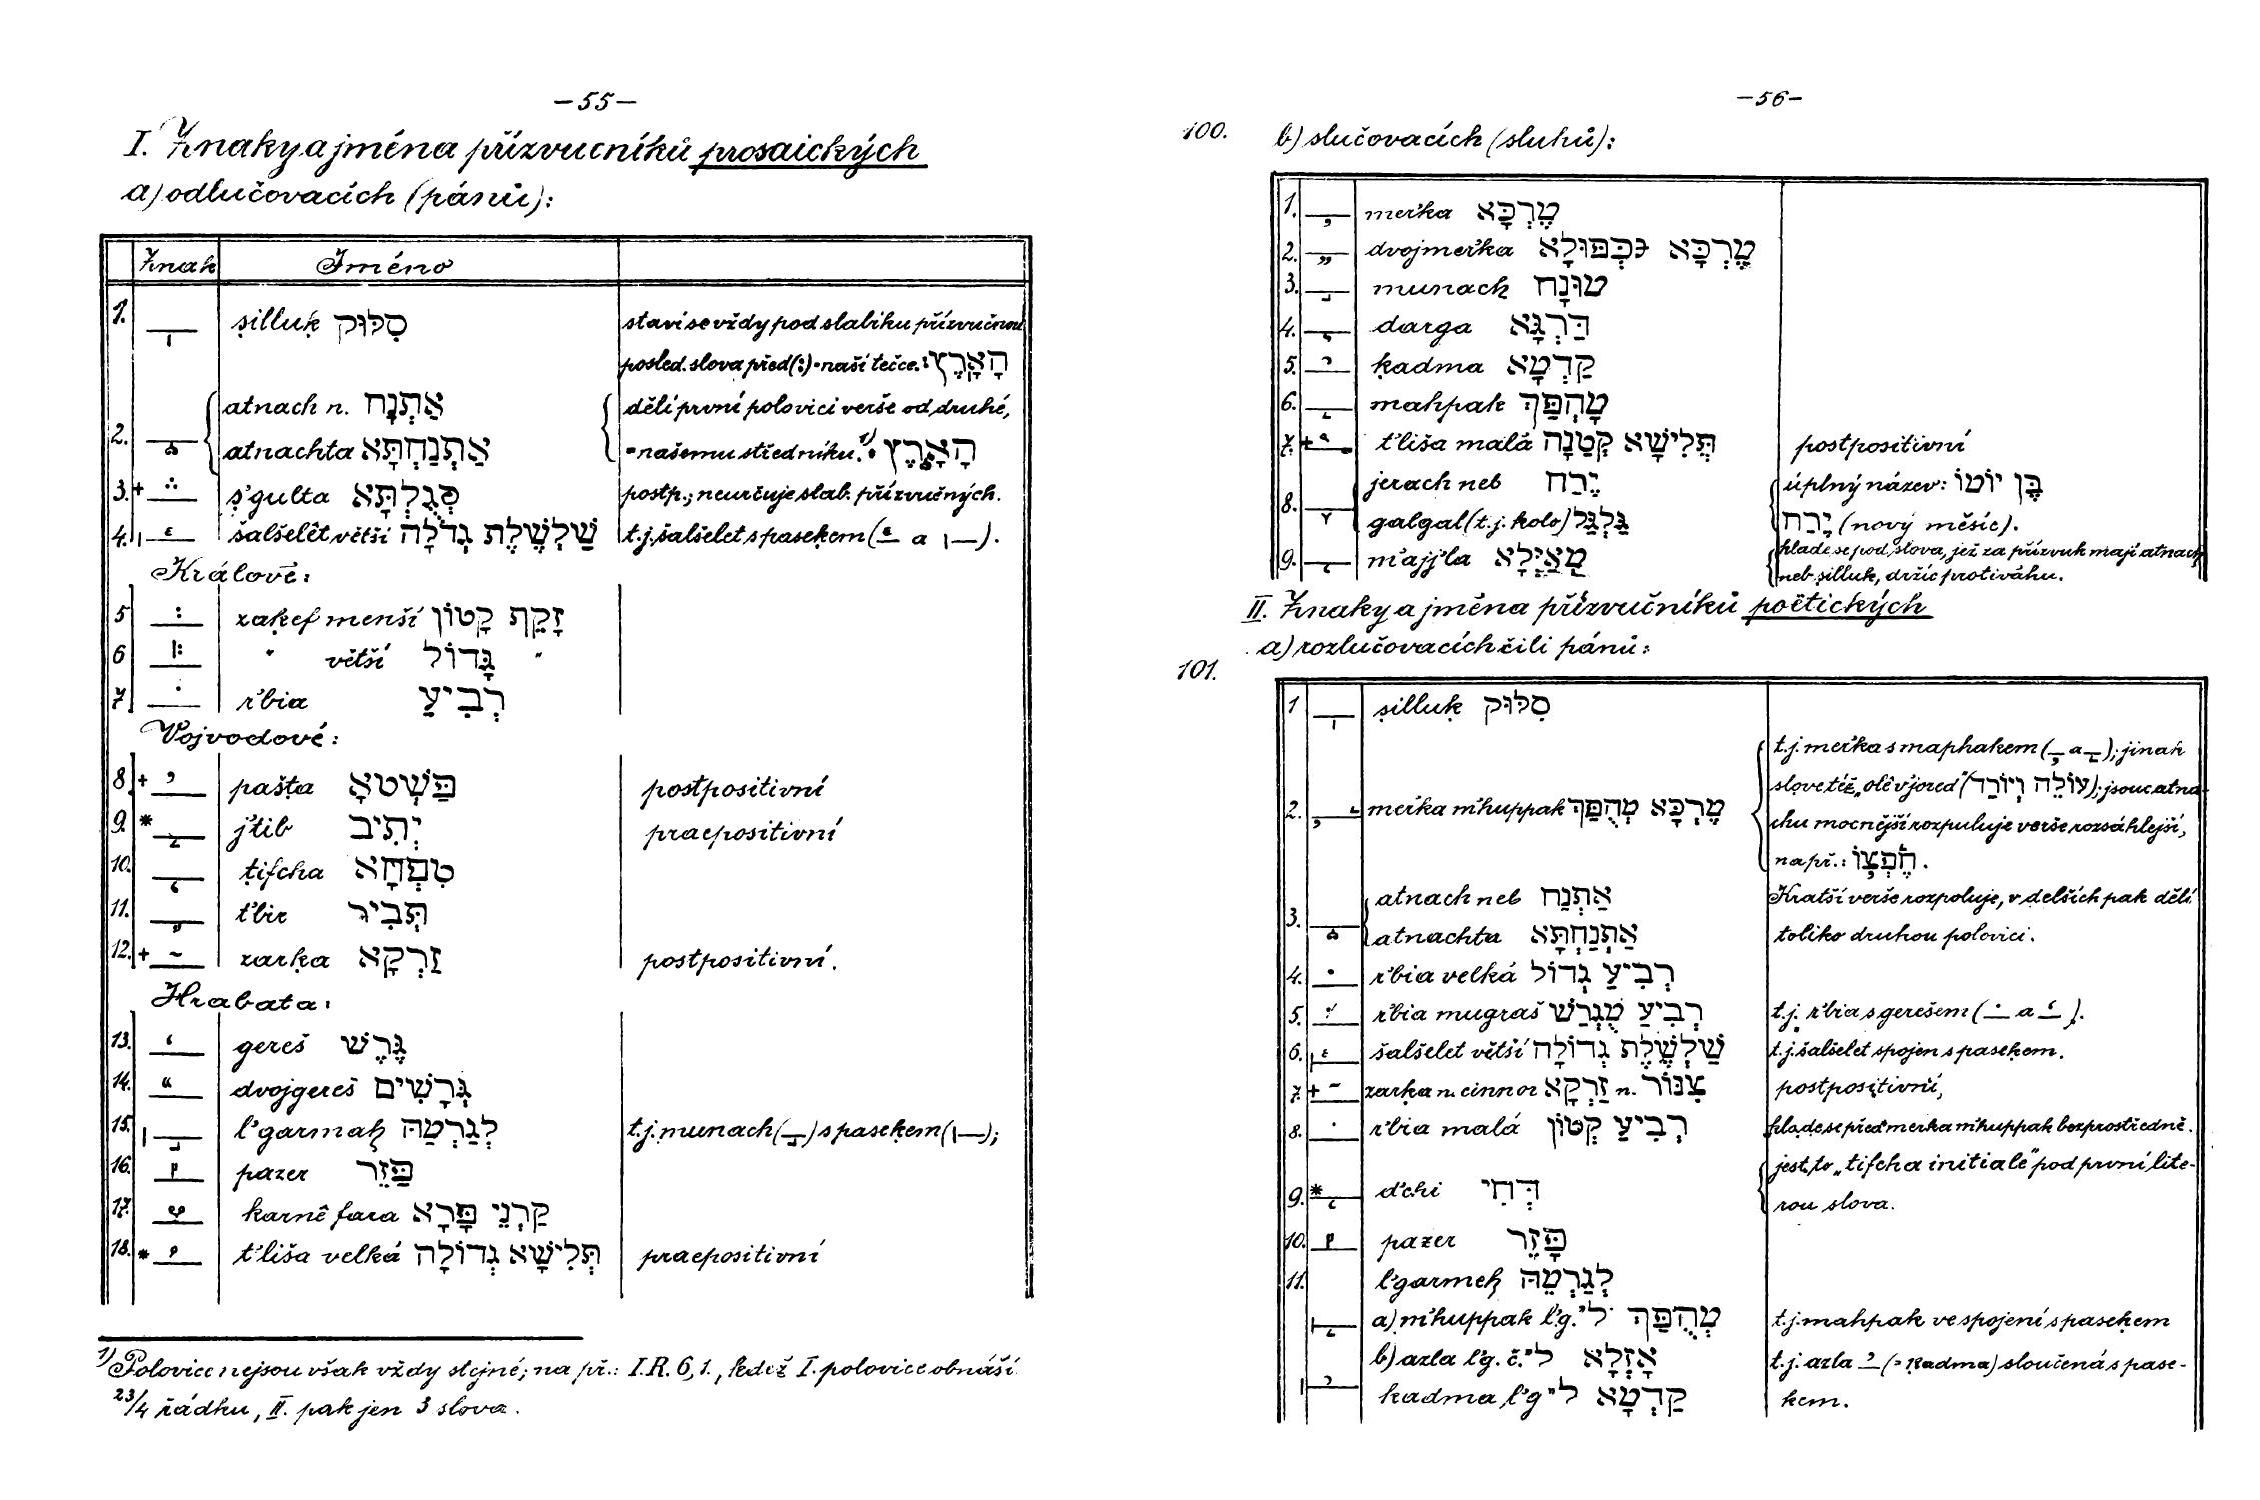 -55-
I. Znaky a jména přízvučníků prosaických
a) odlučovacích (pánů):
Znak Jméno
1. silluḳ סִלּוּק staví se vždy pod slabiku přízvučnou
posled. slova před (:) = naší tečce. הָאָֽרֶץ׃
atnach n. אַתְנָח dělí první polovici verše od druhé,
2. atnachta אַתְנַחְתָּא = našemu středníku.¹⁾ הָאָ֑רֶץ
3. + s'gulta סְגֻלְתָּא postp.; neurčuje slab. přízvučných.
4. šalšelet větší שַׁלְשֶׁלֶת גְדֹלָה t.j. šalšelet s paseḳem ( a ).
Králové:
5 zaḳef menší זָקֵף קָטוֹן
6 " větší גָּדוֹל "
7 r'bia רְבִיעַ
Vojvodové:
8. + pašṭa פַּשְׁטָא postpositivní
9. * j'tib יְתִיב praepositivní
10. ṭifcha טִפְחָא
11. t'bir תְּבִיר
12. + zarḳa זַרְקָא postpositivní.
Hrabata:
13. gereš גֶּרֶשׁ
14. dvojgereš גְּרָשִׁים
15. l'garmah לְגַרְמַהּ t.j. munach ( ) s paseḳem ( );
16. pazer פַּזֵר
17. karnê fara קַרְנֵי פָּרָא
18. * t'liša velká תְּלִישָׁא גְדוֹלָה praepositivní
1) Polovice nejsou však vždy stejné; na př.: I.R. 6,1., kdež I. polovice obnáší
2 3/4 řádku, II. pak jen 3 slova.
-56-
100. b) slučovacích (sluhů):
1. mer'ka מֶרְכָּא
2. dvojmer'ka מֶרְכָּא כְּפוּלָא
3. munach מוּנָח
4. darga דַּרְגָּא
5. ḳadma קַדְמָא
6. mahpak מָהְפַּךְ
7. + t'liša malá תְּלִישָׁא קְטַנָּה postpositivní
jerach neb יֶרַח úplný název: בֶּן יוֹמוֹ
8. galgal (t.j. kolo) גַּלְגַּל יָרֵחַ (nový měsíc).
9. m'ajj'la מַאַיְלָא klade se pod slova, jež za přízvuk mají atnach
neb silluk, držíc protiváhu.
II. Znaky a jména přízvučníků poëtických
a) rozlučovacích čili pánů:
101.
1 silluḳ סִלּוּק
t.j. mer'ka s maphakem ( a ); jinak
slove též „olê v'jored" (עוֹלֶה וְיוֹרֵד); jsouc atna-
2. mer'ka m'huppak מֶרְכָּא מְהֻפַּךְ
chu mocnější rozpuluje verše rozsáhlejší,
na př.: חֶפְצוֹ.
atnach neb אַתְנַח Kratší verše rozpoluje, v delších pak dělí
3. atnachta אַתְנַחְתָּא toliko druhou polovici.
4. r'bia velká רְבִיעַ גְדוֹל
5. r'bia mugraš רְבִיעַ מֻגְרַשׁ t.j. r'bia s gerešem ( a ).
6. šalšelet větší שַׁלְשֶׁלֶת גְדוֹלָה t.j. šalšelet spojen s paseḳem.
7. + zarḳa n. cinnor זַרְקָא n. צִנּוֹר postpositivní,
8. r'bia malá רְבִיעַ קָטוֹן klade se před merka m'huppak bezprostředně.
jest to „tifcha initiale" pod první lite-
9. * d'chi דְּחִי
rou slova.
10. pazer פָּזֵר
11. l'garmeh לְגַרְמֵהּ
a) m'huppak l'g. מְהֻפַּךְ לי t.j. mahpak ve spojení s paseḳem
b) azla l'g. č. אָזְלָא לי t.j. azla (= kadma) sloučená s pase-
kadma l'g קַדְמָא לי kem.